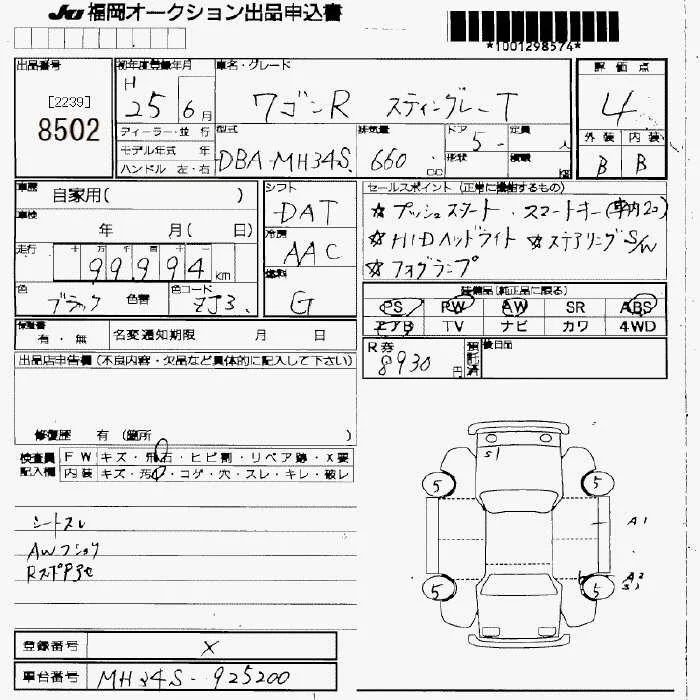 JU 福岡オークション出品申込書
*1001298574*
出品番号
[2239]
8502
初年度登録年月
H 25 6月
車名・グレード
ワゴンR スティングレーT
評価点
4
外装 内装
B B
ディーラー・並行
モデル年式 年
ハンドル 左・右
型式
DBA-MH34S
排気量
660 cc
ドア 5
形状
定員 人
積載 kg
車歴
自家用( )
車検
年 月( 日)
走行
十 万 千 百 十 一
99,994 km
色
ブラック 色替
色コード
ZJ3
シフト
DAT
冷房
AAC
燃料
G
セールスポイント(正常に機能するもの)
☆プッシュスタート・スマートキー(車内2コ)
☆HIDヘッドライト ☆ステアリングS/W
☆フォグランプ
装備品(純正品に限る)
PS PW AW SR ABS
エアB TV ナビ カワ 4WD
R券
8930円
預託済
後日品
保証書
有・無
名変通知期限 月 日
出品店申告欄(不良内容・欠品など具体的に記入して下さい)
修復歴 有 (箇所 )
検査員記入欄
FW キズ・飛石・ヒビ割・リペア跡・X要
内装 キズ・汚れ・コゲ・穴・スレ・キレ・破レ
シートスレ
AWフショク
S1
5 5
A1
A2
S1
5 5
登録番号 X
車台番号 MH34S-925200